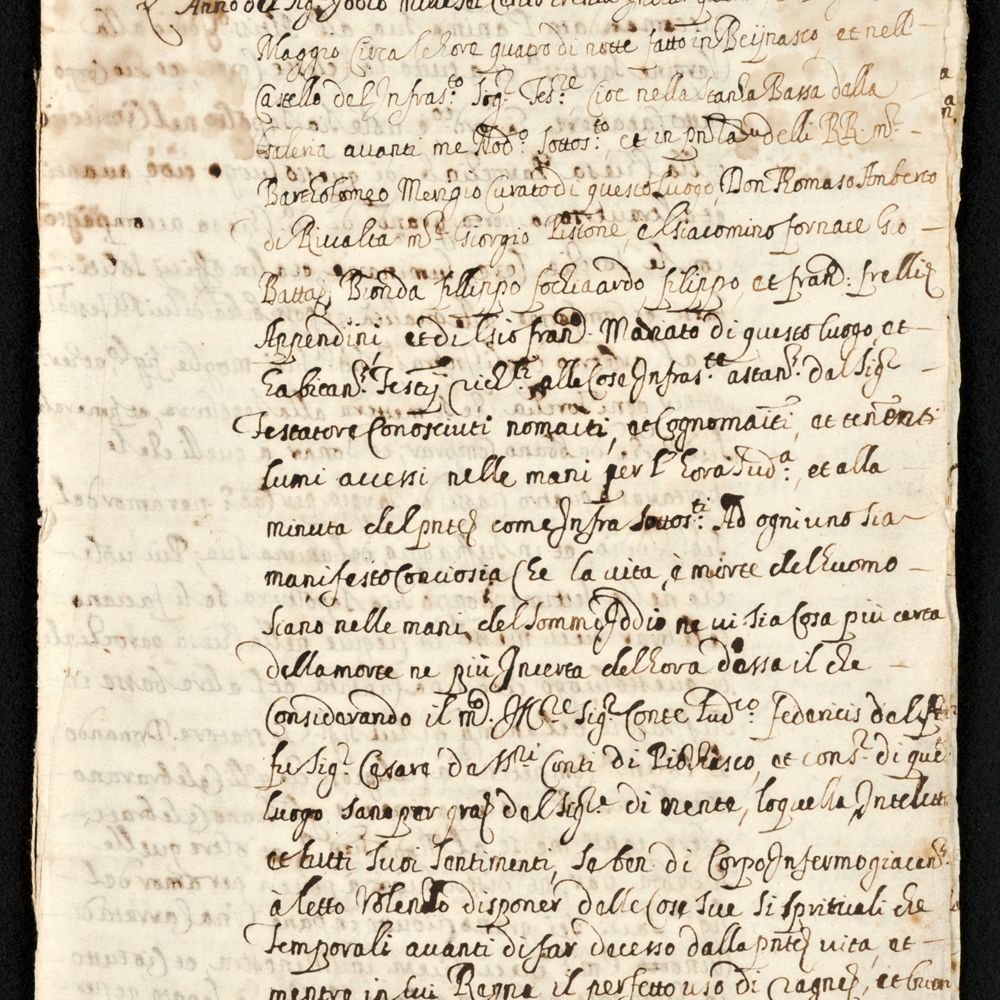 Anno del Sig.r Iddio mille sei cento trenta
Maggio Circa le hore quatro di notte fatto in Beijnasco, et nell
Castello del Infras.to Sig.r Tes.re Cioe nella stanza Bassa della
Galeria avanti me Nod.o Sottos.to, et in pn̄za delli RR. m.r
Bartholomeo Mengio Curato di questo luogo, Don Thomaso Amberto
di Rivalta m.r Giorgio Pistone, el Giacomino fornace Gio
Batta Bionda filippo fogliardo, filippo, et fran.co frelli
Appendini, et di Gio fran.co Manato di questo luogo, et
habitan.ti Testij rich.ti alle Cose Infras.te astan.ti dal Sig.r
Testatore Conosciuti nomaiti, et Cognomaiti, et tenenti
lumi accessi nelle mani per l'hora sud.a, et alla
minuta del pnte come Infra sottos.ti Ad ogni uno sia
manifesto Conciosia Che la vita, e morte del huomo
siano nelle mani del sommo Iddio ne vi sia Cosa più certa
della morte ne più Incerta del hora d'essa il che
Considerando il m.o Ill.re Sig.r Conte Lud.co federicis del
fu Sig.r Cesare de SS.ri Conti di Piobesco, et cons.ri di que
luogo sano per gra del Sig.re di mente, loquella Intelett
et tutti suoi sentimenti, se ben di Corpo Infermo giacen.te
a letto Volendo disponer delle Cose sue si spirituali che
Temporali avanti di far decesso dalla pnte vita, et
mentre in lui Regna il perfetto uso di ragne, et buon